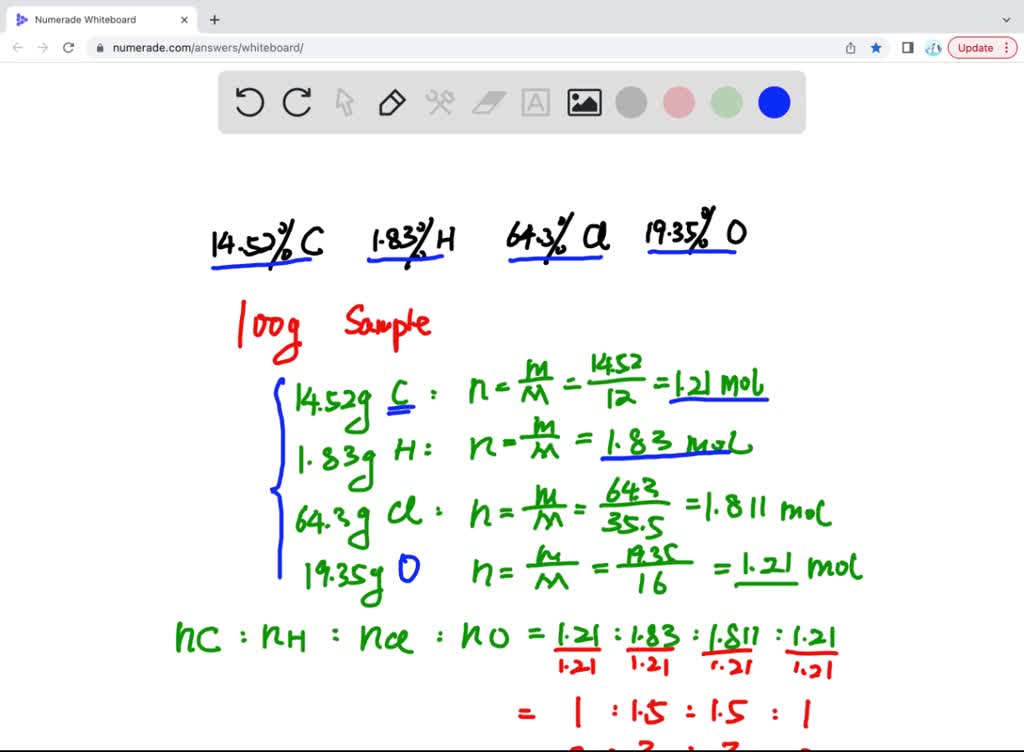 Numerade Whiteboard
numerade.com/answers/whiteboard/
Update
A
14.52% C 1.83% H 64.3% Cl 19.35% O
100g Sample
14.52g C : n = m/M = 14.52/12 = 1.21 mol
1.83g H : n = m/M = 1.83 mol
64.3g Cl : n = m/M = 64.3/35.5 = 1.811 mol
19.35g O n = m/M = 19.35/16 = 1.21 mol
nC : nH : nCl : nO = 1.21/1.21 : 1.83/1.21 : 1.811/1.21 : 1.21/1.21
= 1 : 1.5 : 1.5 : 1